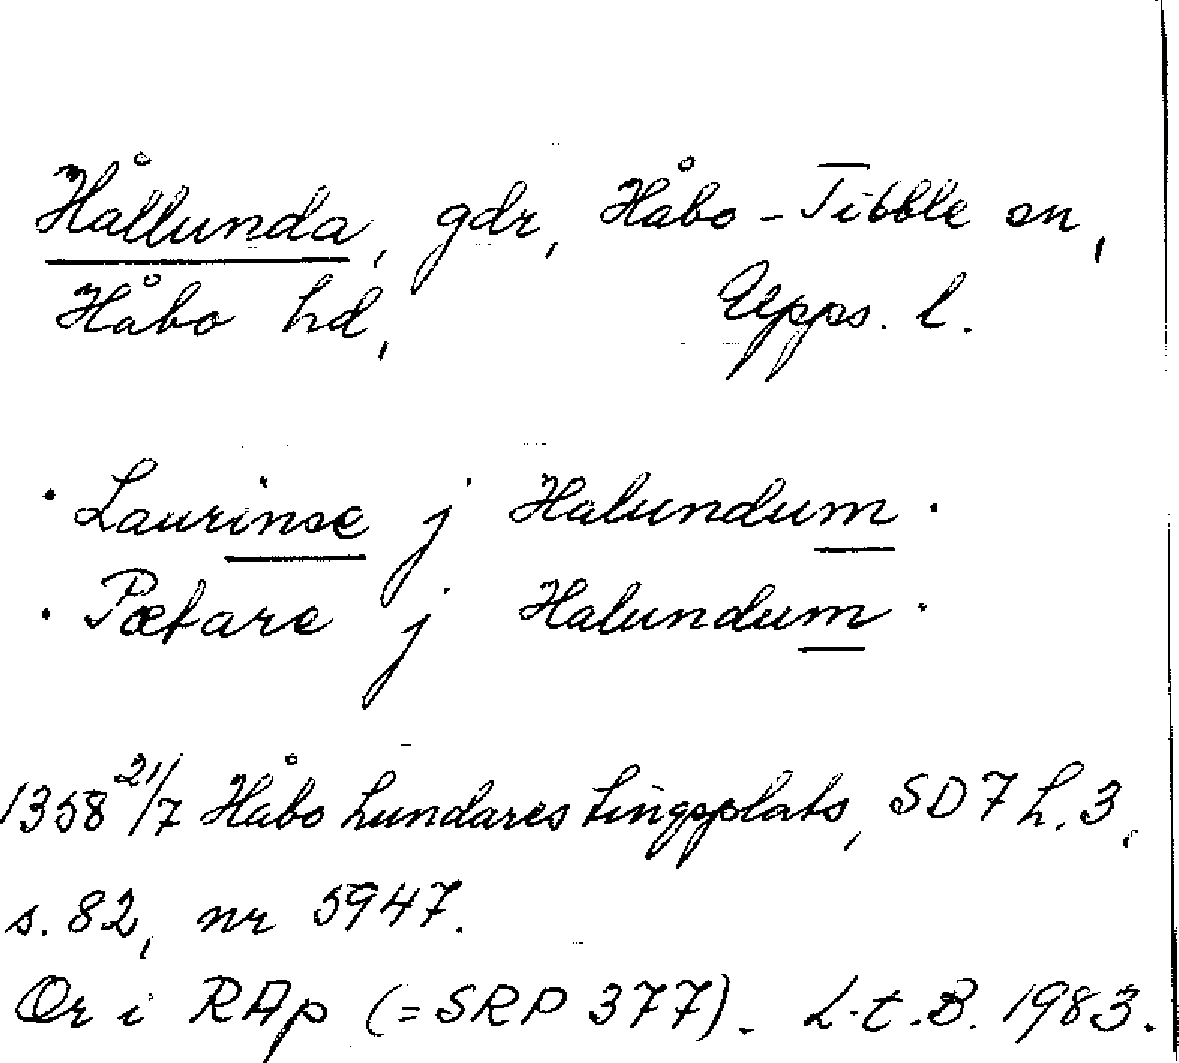 Hållunda, gdr, Håbo-Tibble sn,
Håbo hd, Upps. l.
· Laurinse j Halundum ·
· Pætare j Halundum ·
1358 21/7 Håbo hundares tingsplats, SD 7 h. 3,
s. 82, nr 5947.
Or i RAp (=SRP 377). L.t.B. 1983.